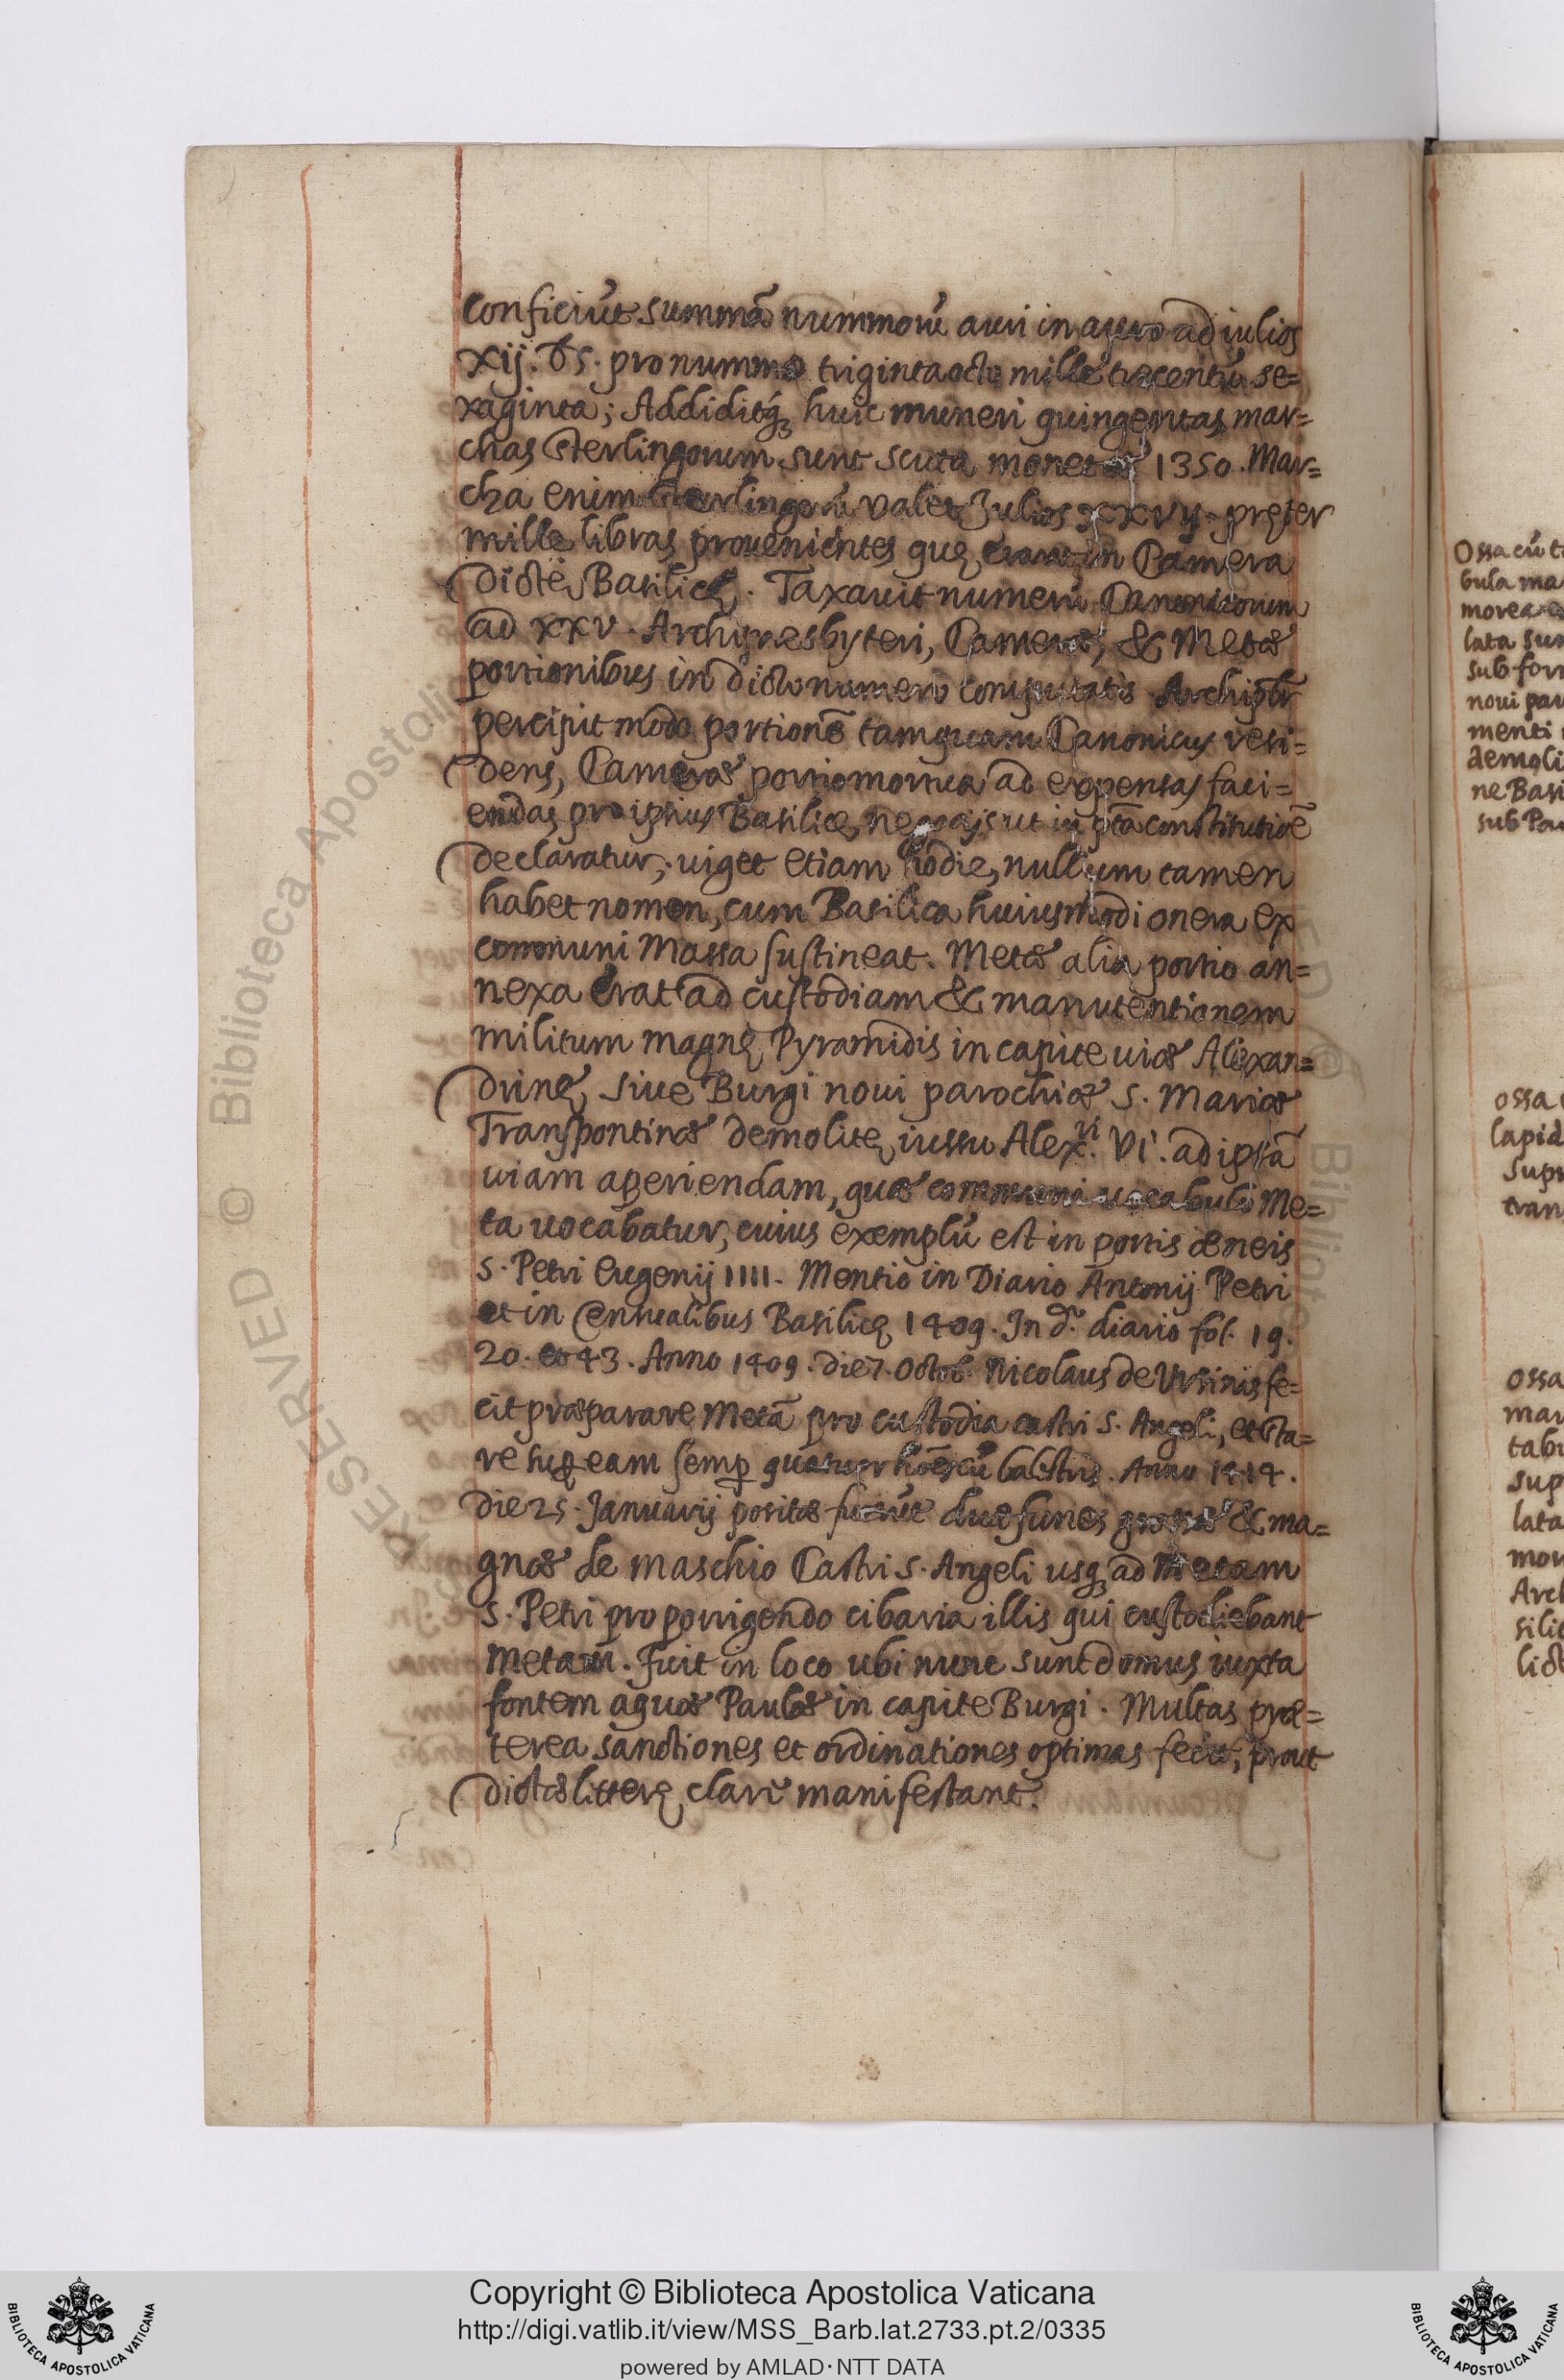 conficiūt summā nummorū auri in auro ad iulios
xij. bs. pro nummo trigintaocto mille trecentū se=
xaginta; Addiditq₃ huic muneri quingentas mar=
chas Sterlingorum sunt scuta monetæ 1350. Mar=
cha enim Sterlingorū valet Julios XXVIJ. pręter
mille libras prouenientes quę erant in Camera
dictę Basilicę. Taxauit numerū Canonicorum
ad XXV. Archipresbyteri, Cameræ, & Metæ
portionibus in dicto numero computatis Archipr̄
percipit modo portionē tamquam Canonicus resi=
dens, Cameræ portio mortua ad expensas faci=
endas pro ipsius Basilicę negocijs ut in p̄ta constitutiōē
declaratur, uiget etiam hodie, nullum tamen
habet nomen, cum Basilica huiusmodi onera ex
communi Massa sustineat. Metæ alia portio an=
nexa erat ad custodiam & manutentionem
militum magnę Pyramidis in capite uiæ Alexan=
drinę, siue Burgi noui parochiæ S. Mariæ
Transpontinæ demolitę iussu Alex.ri VI. ad ipsā
uiam aperiendam, quæ communi uocabulo Me=
ta uocabatur, cuius exemplū est in portis æneis
S. Petri Eugenij IIII. Mentio in Diario Antonij Petri
et in Censualibus Basilicę 1409. In d.º diario fol. 19.
20. et 43. Anno 1409. die 7. Octob. Nicolaus de Vrsinis fe=
cit præparare Metā pro custodia castri S. Angeli, et sta=
re sup eam semp̱ quatuor hōēs cū balistris. Anno 1414.
die 25. Januarij positæ fuerūt duæ funes grossæ & ma=
gnæ de maschio Castri S. Angeli usq₃ ad Metam
S. Petri pro porrigendo cibaria illis qui custodiebant
Metam. Fuit in loco ubi nunc sunt domus iuxta
fontem aquæ Paulæ in capite Burgi. Multas præ=
terea sanctiones et ordinationes optimas fecit, prout
dictæ litterę clarē manifestant.
Ossa cū t
bula ma
morea
lata su
sub for
noui pau
menti
demoli
ne Basi
sub Pau
ossa
lapid
supr
tran
ossa
mar
tabu
sup
lata
mon
Arch
silic
lict
RESERVED © Biblioteca Apostolica
Copyright © Biblioteca Apostolica Vaticana
http://digi.vatlib.it/view/MSS_Barb.lat.2733.pt.2/0335
powered by AMLAD·NTT DATA
BIBLIOTECA APOSTOLICA VATICANA
BIBLIOTECA APOSTOLICA VATICANA